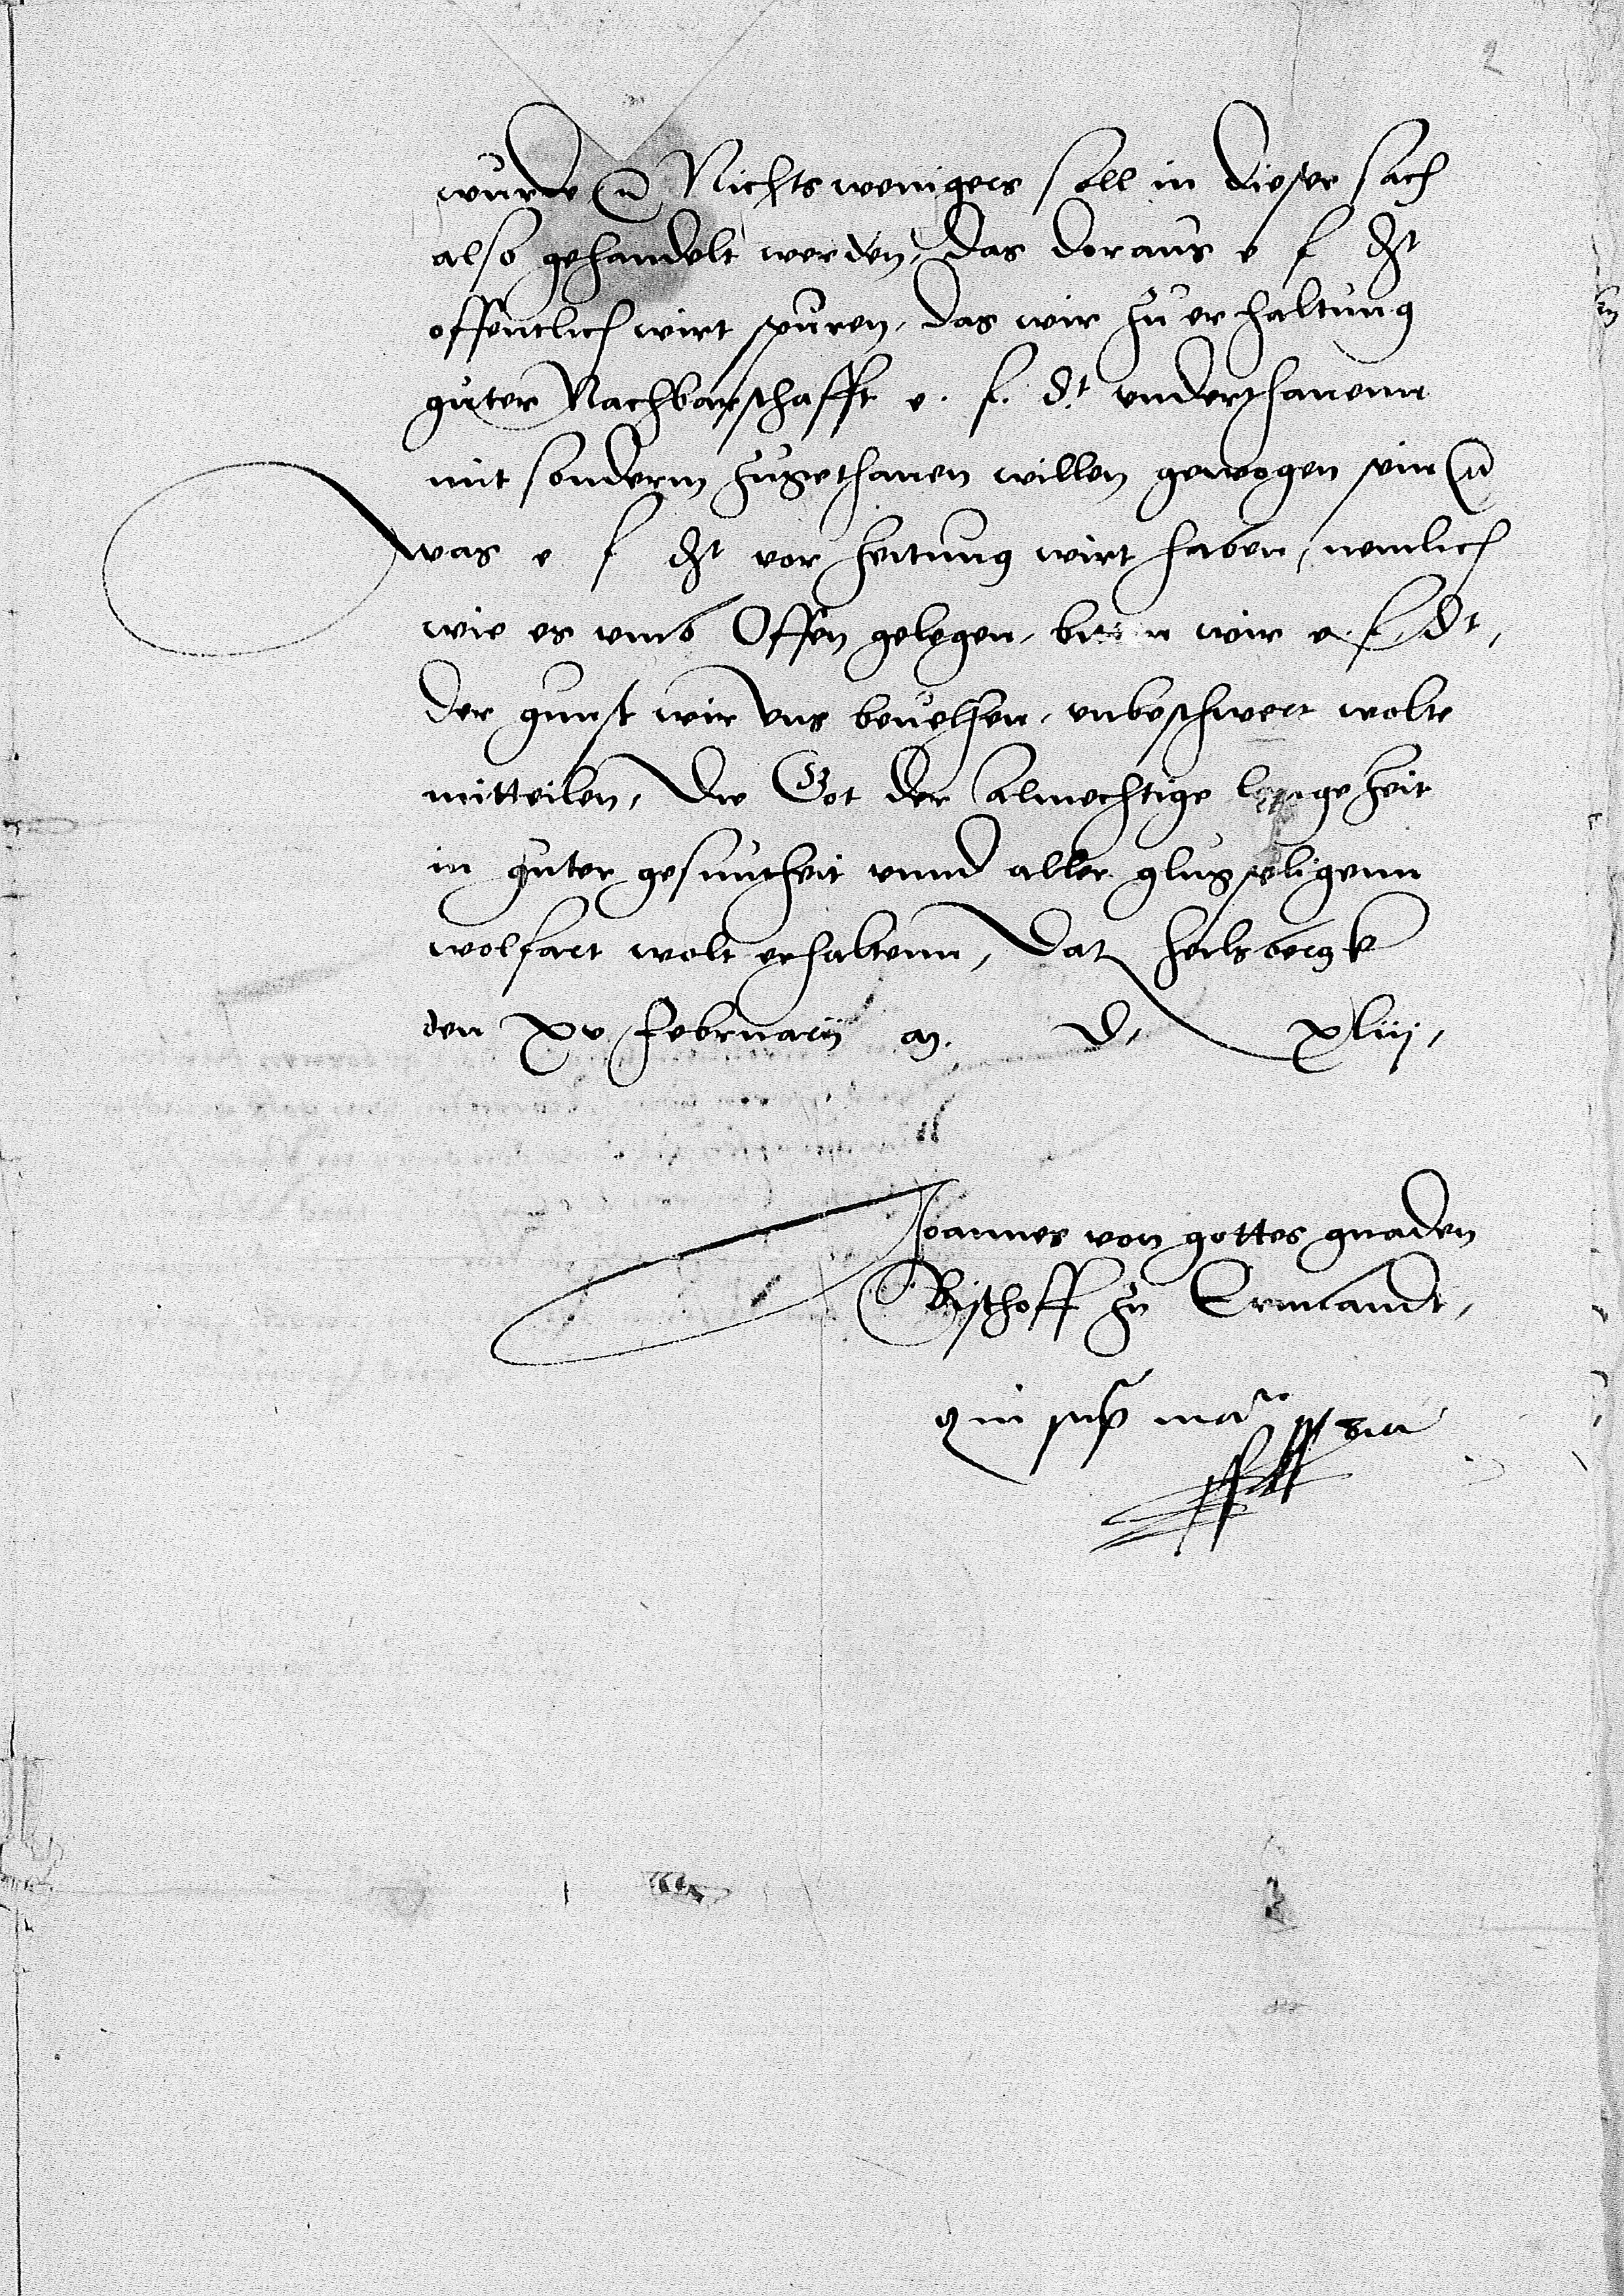 2
wurde Nichtswenigers soll in dieser sach
also gehandelt werden, das doraus e f dht
offentlich wirt spuren, das wir zu erhaltung
guter Nachbarschafft e. f. dt underthanenn
mit sonderm zugethanen willen gewogen sein
was e f dht vor zeitung wirt haben, nemlich
wie es umb Offen gelegen, bitten wir e. f. dt,
der gunst wir uns bevelhen, unbeschwert wolte
mitteilen, Die Got der almechtige lange zeit
in guter gesuntheit unnd aller glugseligenn
wolfart wolt erhaltenn, Dat Heilsbergk
den xv februarij M. D. xliij,
Joannes von gottes gnaden
Bischoff zu Ermlandt,